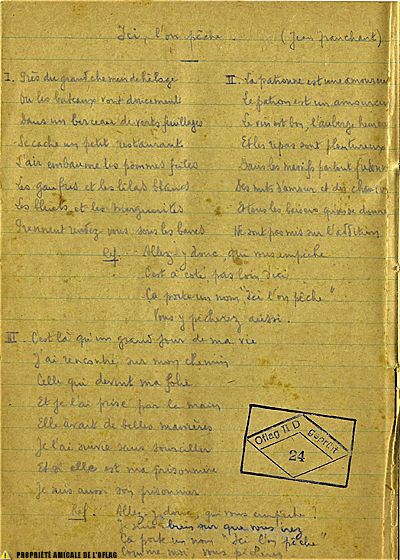 Ici, l'on pêche. (Jean Tranchant)
I. Près du grand chemin de hâlage
Où les bateaux vont doucement
Dans un berceau de verts feuillages
Se cache un petit restaurant
L'air embaume les pommes frites
Les gaufres et les lilas blancs
Les bluets et les marguerites
Prennent rendez-vous sous les bancs
II. La patronne est une amoureuse
Le patron est un amoureux
Le vin est bon, l'auberge heureuse
Et les repas sont plantureux
Dans les massifs partout
Des nuits d'amour et des chansons
Et tous les baisers qu'on se donne
Ne sont pas mis sur l'addition
Ref. Allez y donc, qui vous empêche
C'est à côté pas loin d'ici
Ça porte un nom "Ici l'on pêche"
Vous y pêcherez aussi.
III C'est là qu'un grand jour de ma vie
J'ai rencontré sur mon chemin
Celle qui devint ma folie
Et je l'ai prise par la main
Elle avait de belles manières
Je l'ai suivie sans sourciller
Et si elle est ma prisonnière
Je suis aussi son prisonnier
Ref. Allez y donc, qui vous empêche ?
Je suis bien sûr que vous irez
Ça porte un nom "Ici l'on pêche"
Comme moi, vous pêcherez
Oflag II D
Geprüft
24
PROPRIÉTÉ AMICALE DE L'OFLAG